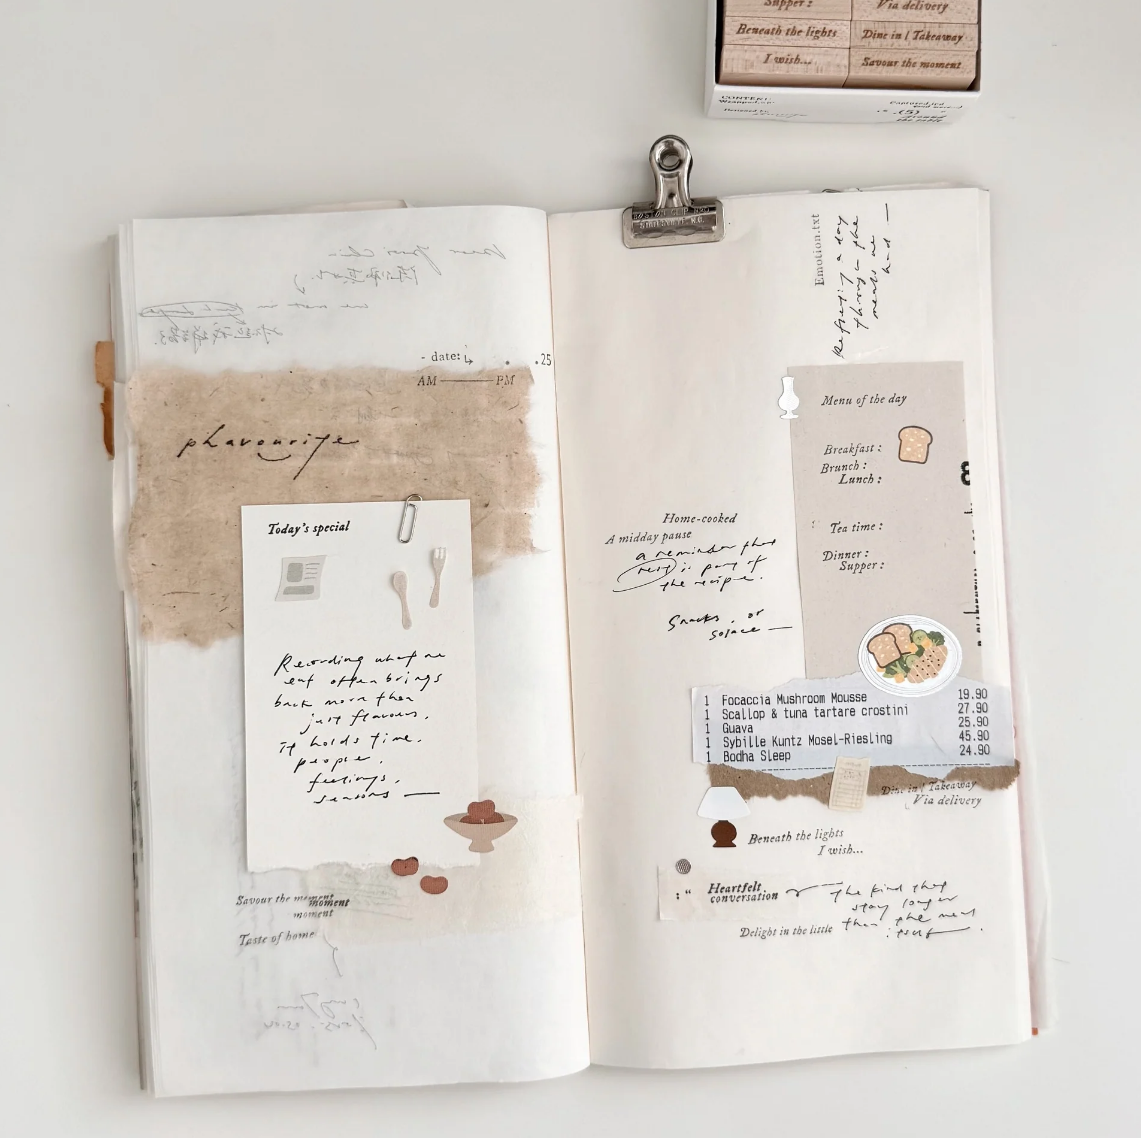 Supper :
Via delivery
Beneath the lights
Dine in / Takeaway
I wish...
Savour the moment
CONTENT:
(5)
the table
- date:
.25
AM
PM
phavourite
Today's special
Recording what we
eat often brings
back more than
just flavours.
It holds time.
people.
feelings.
seasons —
Savour the moment
moment
moment
Taste of home
Emotion.txt
a day
through the
meals we
had —
Menu of the day
Breakfast :
Brunch :
Lunch :
Tea time :
Dinner :
Supper :
Home-cooked
A midday pause
a reminder that
rest is part of
the recipe.
Snacks, or
solace —
1 Focaccia Mushroom Mousse 19.90
1 Scallop & tuna tartare crostini 27.90
1 Guava 25.90
1 Sybille Kuntz Mosel-Riesling 45.90
1 Bodha Sleep 24.90
Dine in / Takeaway
Via delivery
Beneath the lights
I wish...
:“ Heartfelt
conversation
the kind that
stay longer
than the meal
itself.
Delight in the little